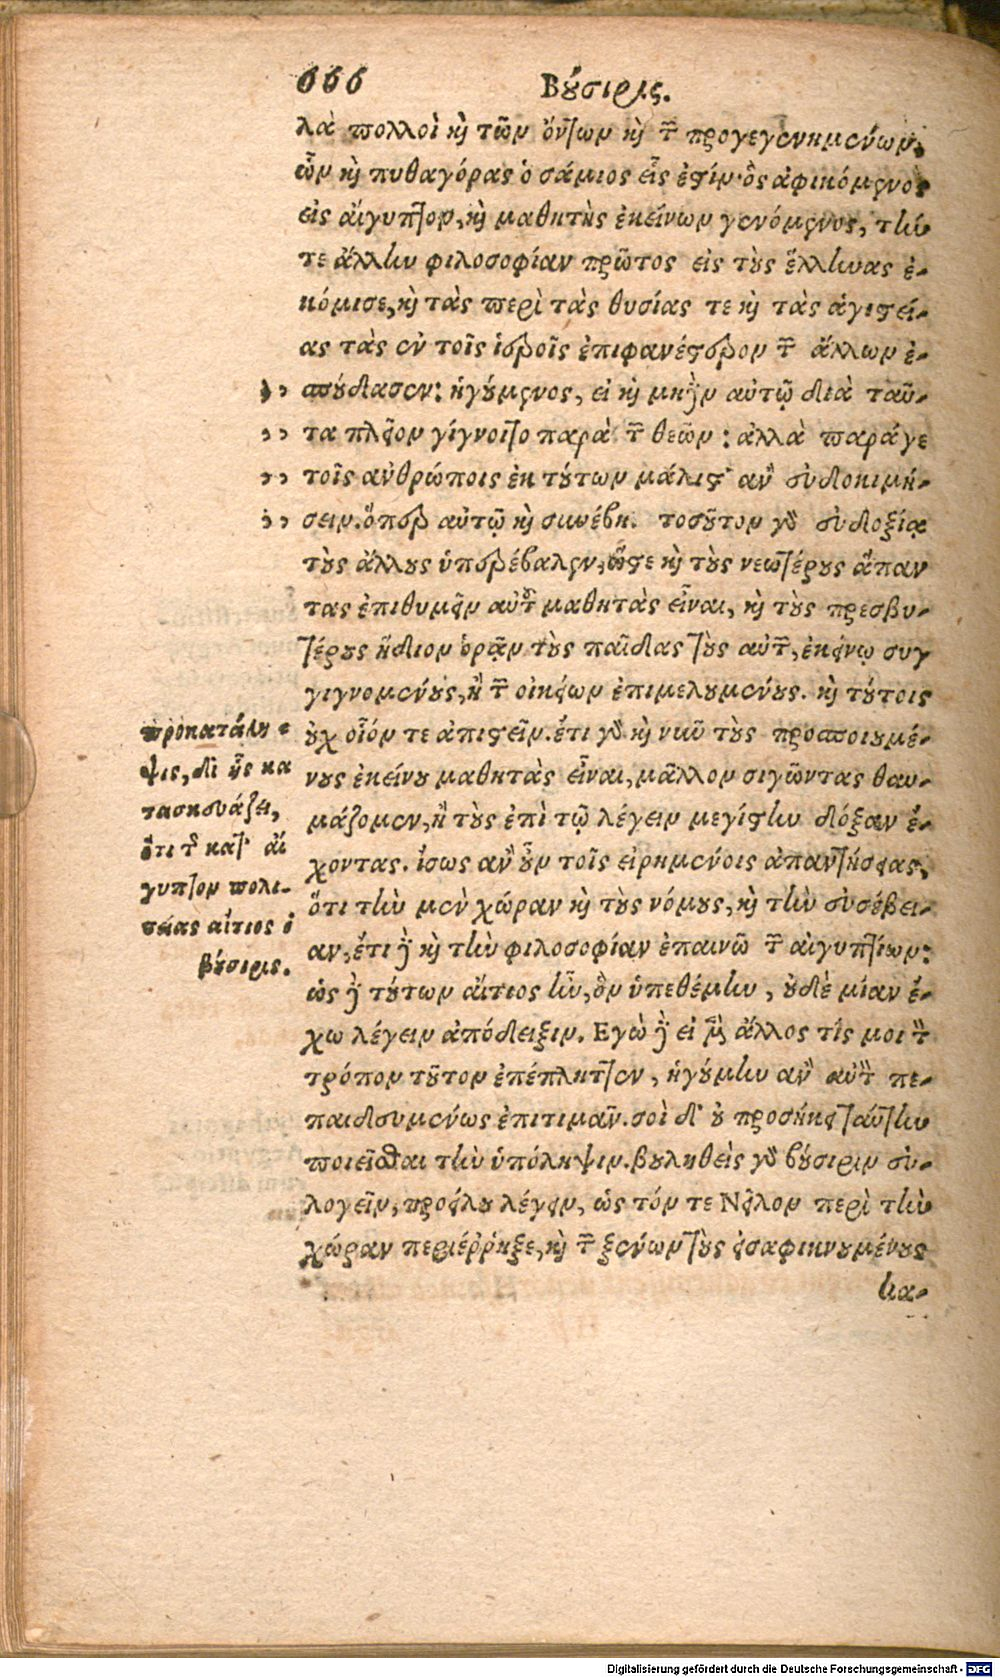 666 Βούσιρις.
λὰ πολλοὶ καὶ τῶν ὄντων καὶ τῶν προγεγενημένων,
ὧν καὶ πυθαγόρας ὁ σάμιος εἷς ἐστίν· ὃς ἀφικόμενος
εἰς αἴγυπτον, καὶ μαθητὴς ἐκείνων γενόμενος, τὴν
τε ἄλλην φιλοσοφίαν πρῶτος εἰς τοὺς ἕλληνας ἐ-
κόμισε, καὶ τὰς περὶ τὰς θυσίας τε καὶ τὰς ἁγιστεί-
ας τὰς ἐν τοῖς ἱεροῖς ἐπιφανέστερον τῶν ἄλλων ἐ-
σπούδασεν: ἡγούμενος, εἰ καὶ μηδὲν αὐτῷ διὰ ταῦ-
τα πλεῖον γίγνοιτο παρὰ τῶν θεῶν: ἀλλὰ παράγε
τοῖς ἀνθρώποις ἐκ τούτων μάλιστ' ἂν εὐδοκιμή-
σειν. ὅπερ αὐτῷ καὶ συνέβη. τοσοῦτον γὰρ εὐδοξίᾳ
τοὺς ἄλλους ὑπερέβαλεν, ὥστε καὶ τοὺς νεωτέρους ἅπαν
τας ἐπιθυμεῖν αὐτοῦ μαθητὰς εἶναι, καὶ τοὺς πρεσβυ-
τέρους ἥδιον ὁρᾷν τοὺς παῖδας τοὺς αὐτῶν, ἐκείνῳ συγ
γιγνομένους, ἢ τῶν οἰκείων ἐπιμελουμένους. καὶ τούτοις
οὐχ οἷόν τε ἀπιστεῖν. ἔτι γὰρ καὶ νῦν τοὺς προσποιουμέ-
νους ἐκείνου μαθητὰς εἶναι, μᾶλλον σιγῶντας θαυ-
μάζομεν, ἢ τοὺς ἐπὶ τῷ λέγειν μεγίστην δόξαν ἔ-
χοντας. ἴσως ἂν οὖν τοῖς εἰρημένοις ἀπαντήσειας,
ὅτι τὴν μὲν χώραν καὶ τοὺς νόμους, καὶ τὴν εὐσέβει-
αν, ἔτι δὲ καὶ τὴν φιλοσοφίαν ἐπαινῶ τῶν αἰγυπτίων:
ὡς δὲ τούτων αἴτιος ἦν, ὃν ὑπεθέμην, οὐδὲ μίαν ἔ-
χω λέγειν ἀπόδειξιν. Εγὼ δὲ εἰ μὲν ἄλλος τίς μοι τὸν
τρόπον τοῦτον ἐπέπληττεν, ἡγούμην ἂν αὐτὸν πε-
παιδευμένως ἐπιτιμᾷν. σοὶ δ' οὐ προσήκει ταύτην
ποιεῖσθαι τὴν ὑπόληψιν. βουληθεὶς γὰρ βούσιριν εὐ-
λογεῖν, προείλου λέγειν, ὡς τόν τε Νεῖλον περὶ τὴν
χώραν περιέῤῥηξε, καὶ τῶν ξένων τοὺς εἰσαφικνουμένους
κα-
προκατάλη-
ψις, δι' ἧς κα
τασκευάζει,
ὅτι τῆς κατ' αἴ
γυπτον πολι-
τείας αἴτιος ὁ
βούσιρις.